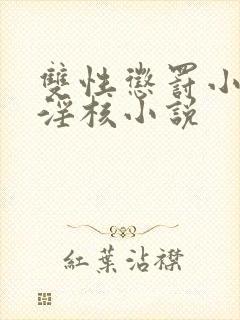 雙性懲罰小
淫核小說
紅葉沾襟